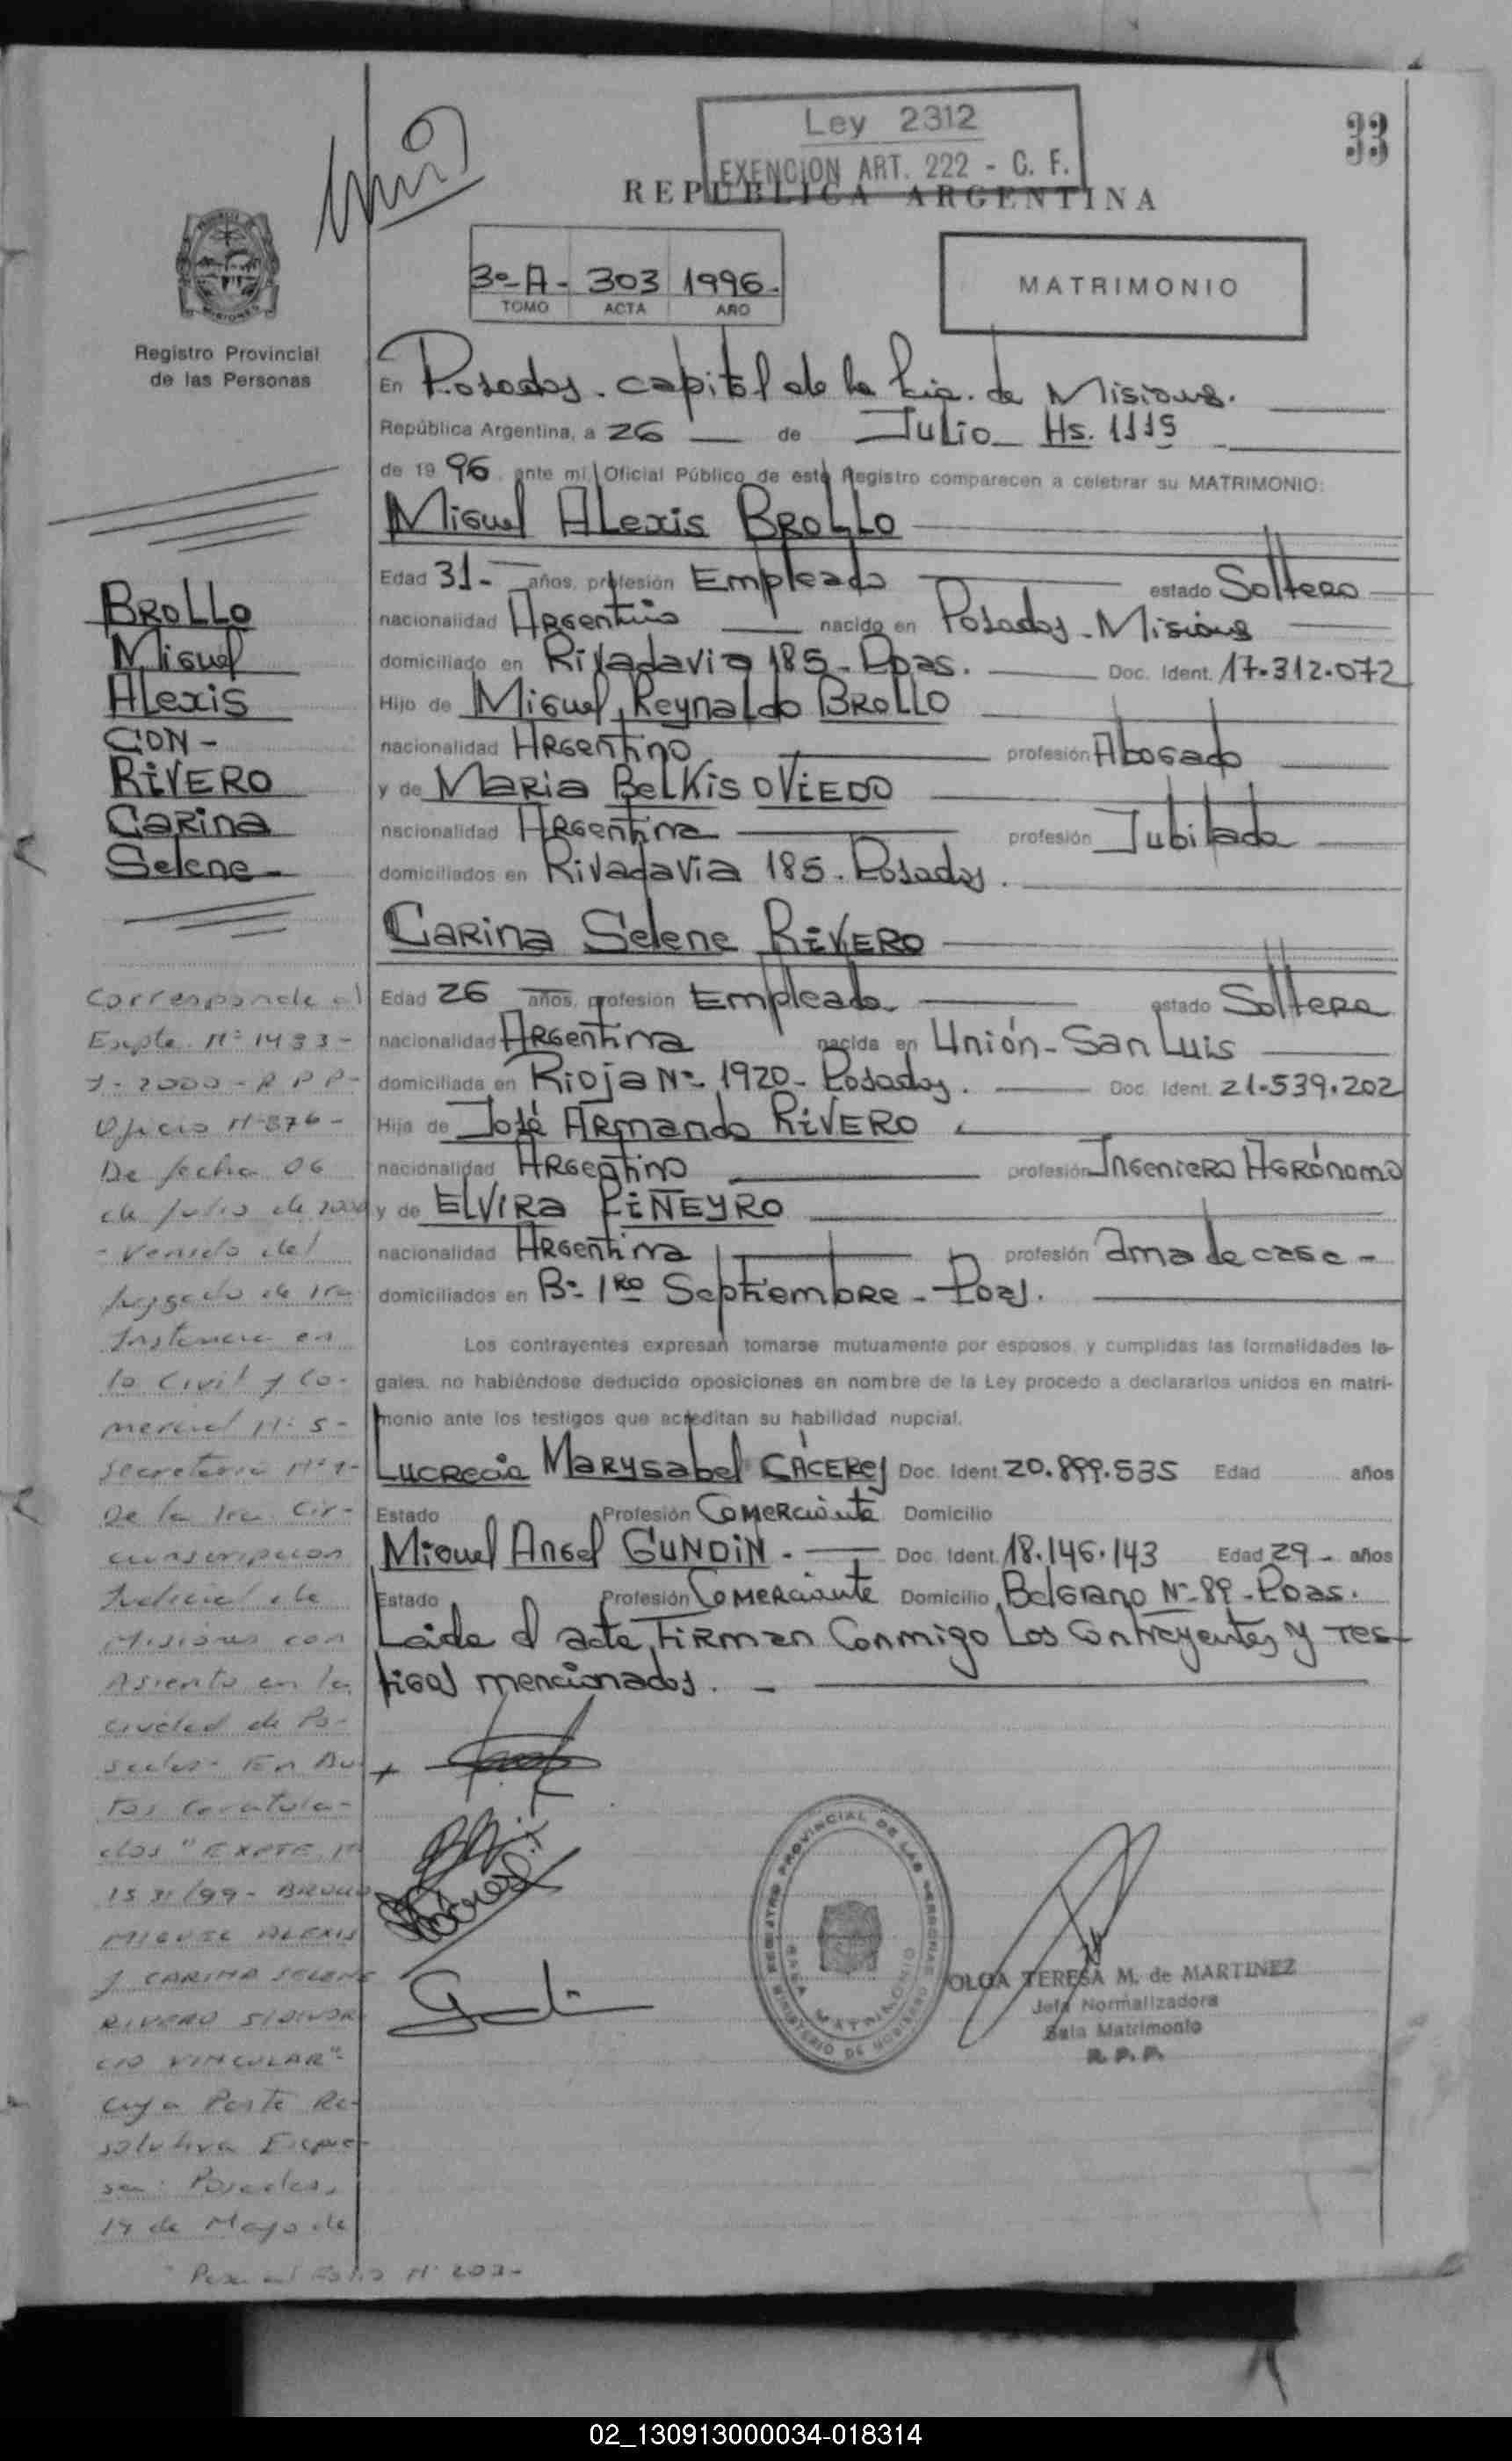 Ley 2312
EXENCION ART. 222 - C. F.
33
REPUBLICA ARGENTINA
3º-A- 303 1996.
TOMO ACTA AÑO
MATRIMONIO
Registro Provincial
de las Personas
En Posadas. capital de la Pcia. de Misiones.
República Argentina, a 26 de Julio Hs. 1115
de 1996, ante mí, Oficial Público de este Registro comparecen a celebrar su MATRIMONIO:
Miguel Alexis BROLLO
Edad 31- años, profesión Empleado estado Soltero
nacionalidad Argentino nacido en Posadas - Misiones
domiciliado en Rivadavia 185 - Pdas. Doc. Ident. 17.312.072
Hijo de Miguel Reynaldo BROLLO
nacionalidad Argentino profesión Abogado
y de Maria Belkis OVIEDO
nacionalidad Argentina profesión Jubilada
domiciliados en Rivadavia 185. Posadas.
Carina Selene RIVERO
Edad 26 años, profesión Empleada estado Soltera
nacionalidad Argentina nacida en Unión - San Luis
domiciliada en Rioja Nº 1920 - Posadas. Doc. Ident. 21.539.202
Hija de José Armando RIVERO
nacionalidad Argentino profesión Ingeniero Agrónomo
y de ELVIRA PIÑEYRO
nacionalidad Argentina profesión ama de casa -
domiciliados en Bº 1RO Septiembre - Pdas.
Los contrayentes expresan tomarse mutuamente por esposos, y cumplidas las formalidades le-
gales, no habiéndose deducido oposiciones en nombre de la Ley procedo a declararlos unidos en matri-
monio ante los testigos que acreditan su habilidad nupcial.
Lucrecia Marysabel CÁCERES Doc. Ident. 20.899.535 Edad años
Estado Profesión Comerciante Domicilio
Miguel Angel GUNDIN. - Doc. Ident. 18.146.143 Edad 29 - años
Estado Profesión Comerciante Domicilio Belgrano Nº 89 - Pdas.
Leida el acta, Firman Conmigo Los Contrayentes y Tes-
tigos mencionados. -
BROLLO
Miguel
Alexis
CON -
RIVERO
Carina
Selene
Corresponde al
Expte. Nº 1433-
J-2000-R P P-
Oficio Nº 876-
De fecha 06
de Julio de 2000
- Venido del
Juzgado de 1ra
Instancia en
lo Civil y Co-
mercial Nº 5-
Secretaria Nº 1-
De la 1ra. Cir-
cunscripcion
Judicial de
Misiones con
Asiento en la
ciudad de Po-
sadas- En Au-
tos Caratula-
dos "EXPTE Nº
1531/99 - BROLLO
MIGUEL ALEXIS
y CARINA SELENE
RIVERO S/DIVOR
CIO VINCULAR"-
Cuya Parte Re-
solutiva Expre-
sa: Posadas,
14 de Mayo de
Pasa al Folio Nº 203-
REGISTRO PROVINCIAL DE LAS PERSONAS
MINISTERIO DE GOBIERNO
OLGA TERESA M. de MARTINEZ
Jefa Normalizadora
Sala Matrimonio
R. P. P.
02_130913000034-018314